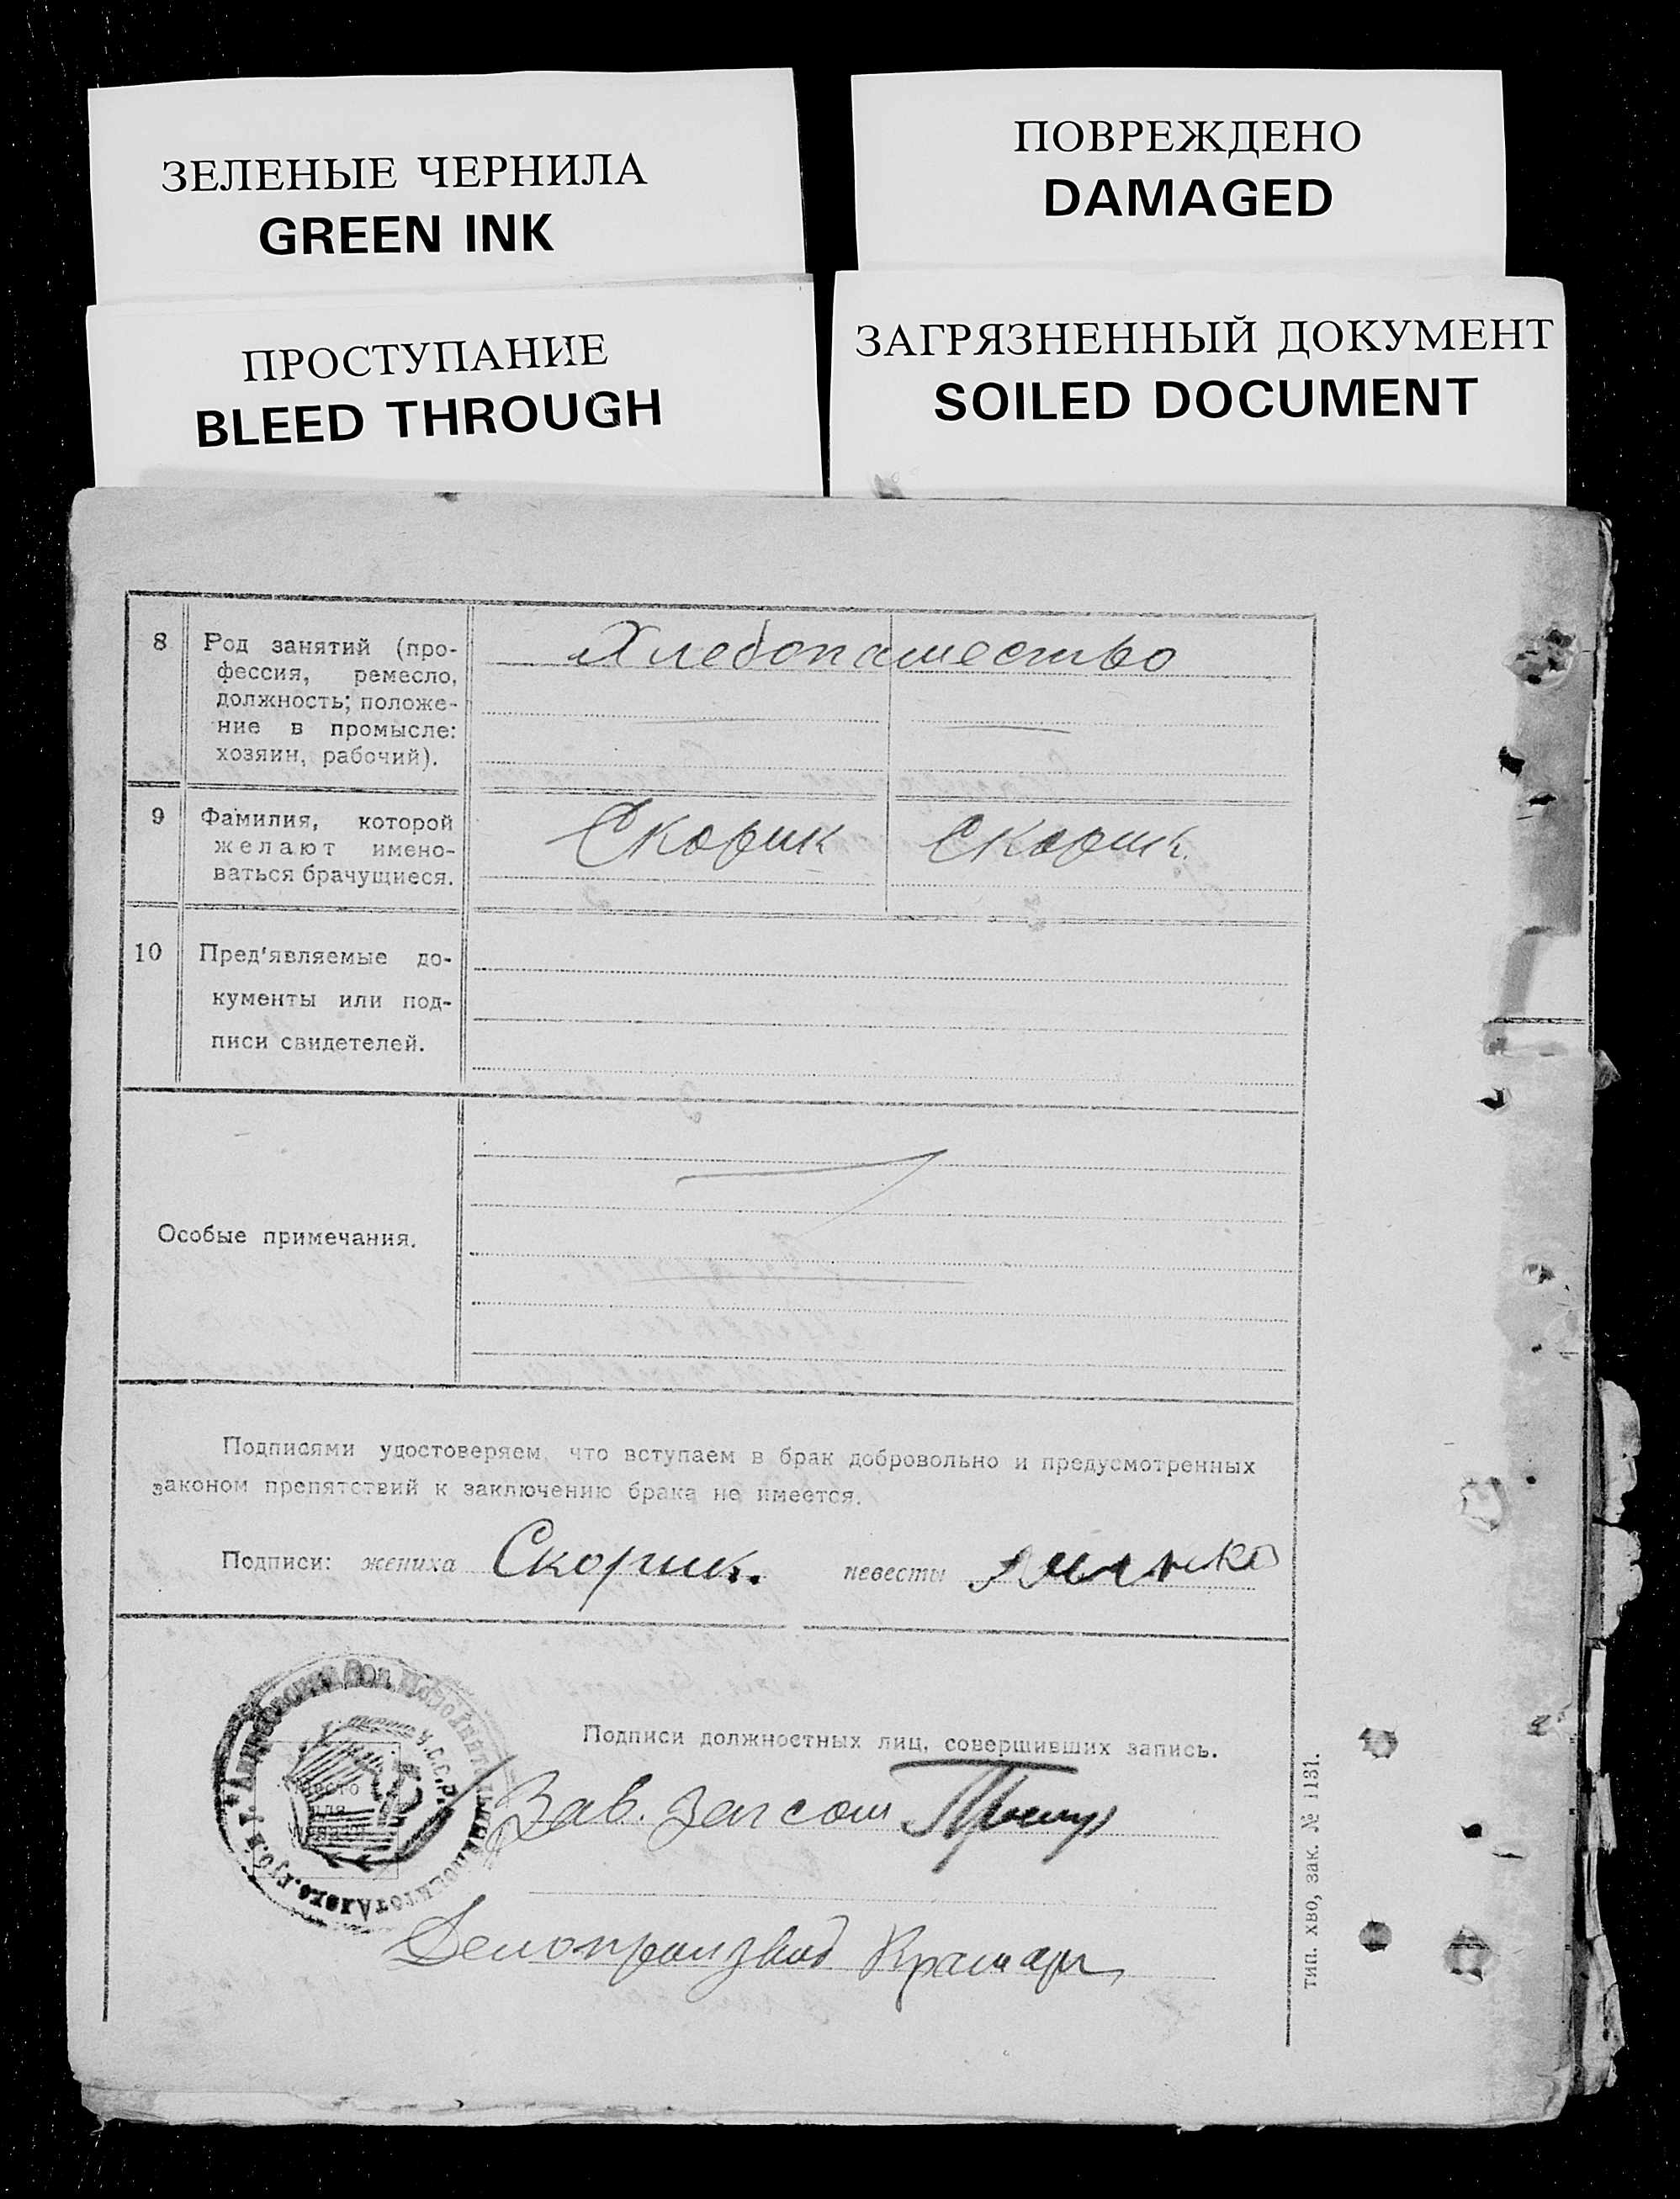 ЗЕЛЕНЫЕ ЧЕРНИЛА
GREEN INK
ПОВРЕЖДЕНО
DAMAGED
ПРОСТУПАНИЕ
BLEED THROUGH
ЗАГРЯЗНЕННЫЙ ДОКУМЕНТ
SOILED DOCUMENT
8 Род занятий (про-
фессия, ремесло,
должность; положе-
ние в промысле:
хозяин, рабочий).
Хлебопашество
9 Фамилия, которой
желают имено-
ваться брачущиеся.
Скорик Скорик.
10 Пред'являемые до-
кументы или под-
писи свидетелей.
Особые примечания.
Подписями удостоверяем, что вступаем в брак добровольно и предусмотренных
законом препятствий к заключению брака не имеется.
Подписи: жениха Скорик. невесты
Подписи должностных лиц, совершивших запись.
У.С.С.Р.
Зав. Загсом
Делопроизвод
тип. хво, зак. № 1131.